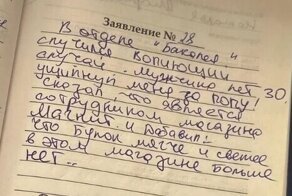 Заявление № 28
В отделе "Бакалея"
случился вопиющий
случай. Мужчина лет 30.
ущипнул меня за попу!
Сказал что является
сотрудником магазина
Магнит и добавил:
что булок мягче и свежее
в этом магазине больше
нет..